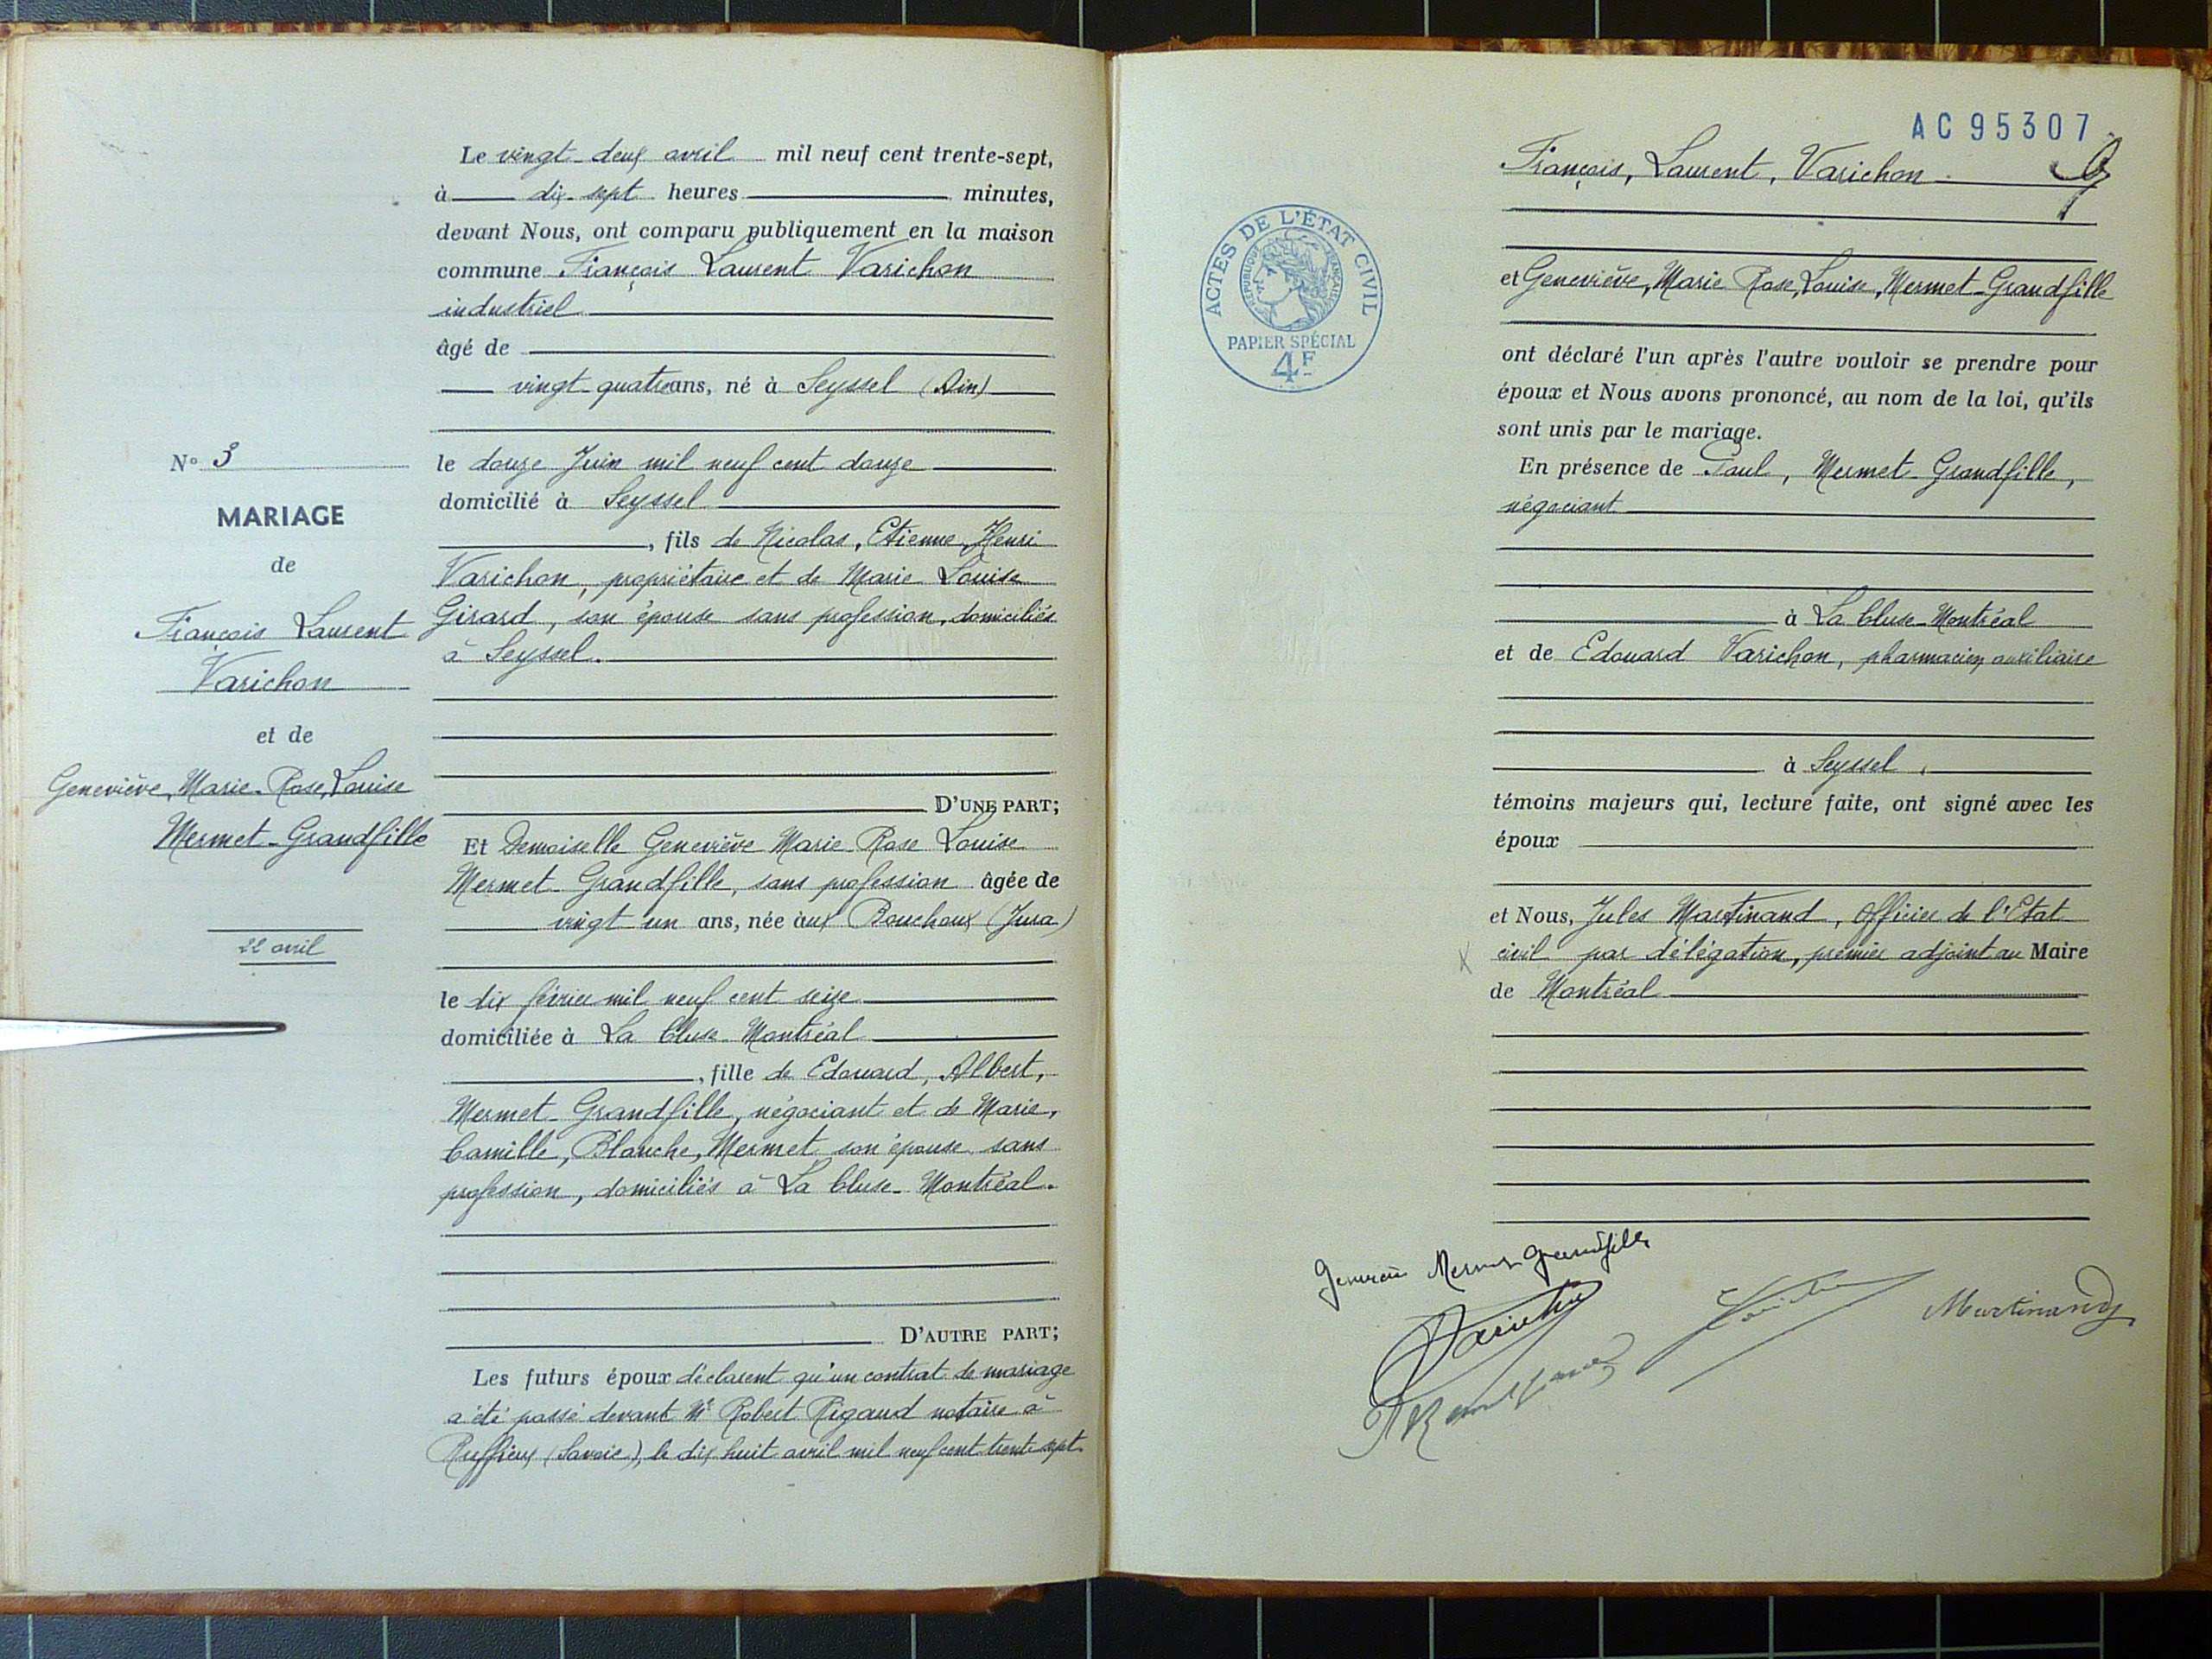 Le vingt-deux avril mil neuf cent trente-sept,
à dix-sept heures minutes,
devant Nous, ont comparu publiquement en la maison
commune François Laurent Varichon
industriel
âgé de
vingt-quatre ans, né à Seyssel (Ain)
le douze Juin mil neuf cent douze
domicilié à Seyssel
, fils de Nicolas, Etienne, Henri
Varichon, propriétaire et de Marie Louise
Girard, son épouse sans profession, domiciliés
à Seyssel.
D'UNE PART;
Et Demoiselle Geneviève Marie-Rose Louise
Mermet-Grandfille, sans profession âgée de
vingt un ans, née aux Bouchoux (Jura)
le dix février mil neuf cent seize
domiciliée à La Cluse-Montréal
, fille de Edouard, Albert,
Mermet-Grandfille, négociant et de Marie,
Camille, Blanche, Mermet son épouse sans
profession, domiciliés à La Cluse-Montréal.
D'AUTRE PART;
Les futurs époux déclarent qu'un contrat de mariage
a été passé devant Me Robert Rigaud notaire à
Ruffieux (Savoie), le dix huit avril mil neuf cent trente sept.
N° 3
MARIAGE
de
François Laurent
Varichon
et de
Geneviève, Marie-Rose, Louise
Mermet-Grandfille
22 avril
AC 95307
François, Laurent, Varichon
et Geneviève, Marie-Rose, Louise, Mermet-Grandfille
ont déclaré l'un après l'autre vouloir se prendre pour
époux et Nous avons prononcé, au nom de la loi, qu'ils
sont unis par le mariage.
En présence de Paul, Mermet-Grandfille,
négociant
à La Cluse-Montréal
et de Edouard Varichon, pharmacien auxiliaire
à Seyssel,
témoins majeurs qui, lecture faite, ont signé avec les
époux
et Nous, Jules Martinand, Officier de l'Etat
civil par délégation, premier adjoint au Maire
de Montréal
ACTES DE L'ÉTAT CIVIL
RÉPUBLIQUE FRANÇAISE
PAPIER SPÉCIAL
4F
Geneviève Mermet Grandfille
Varichon
Martinand